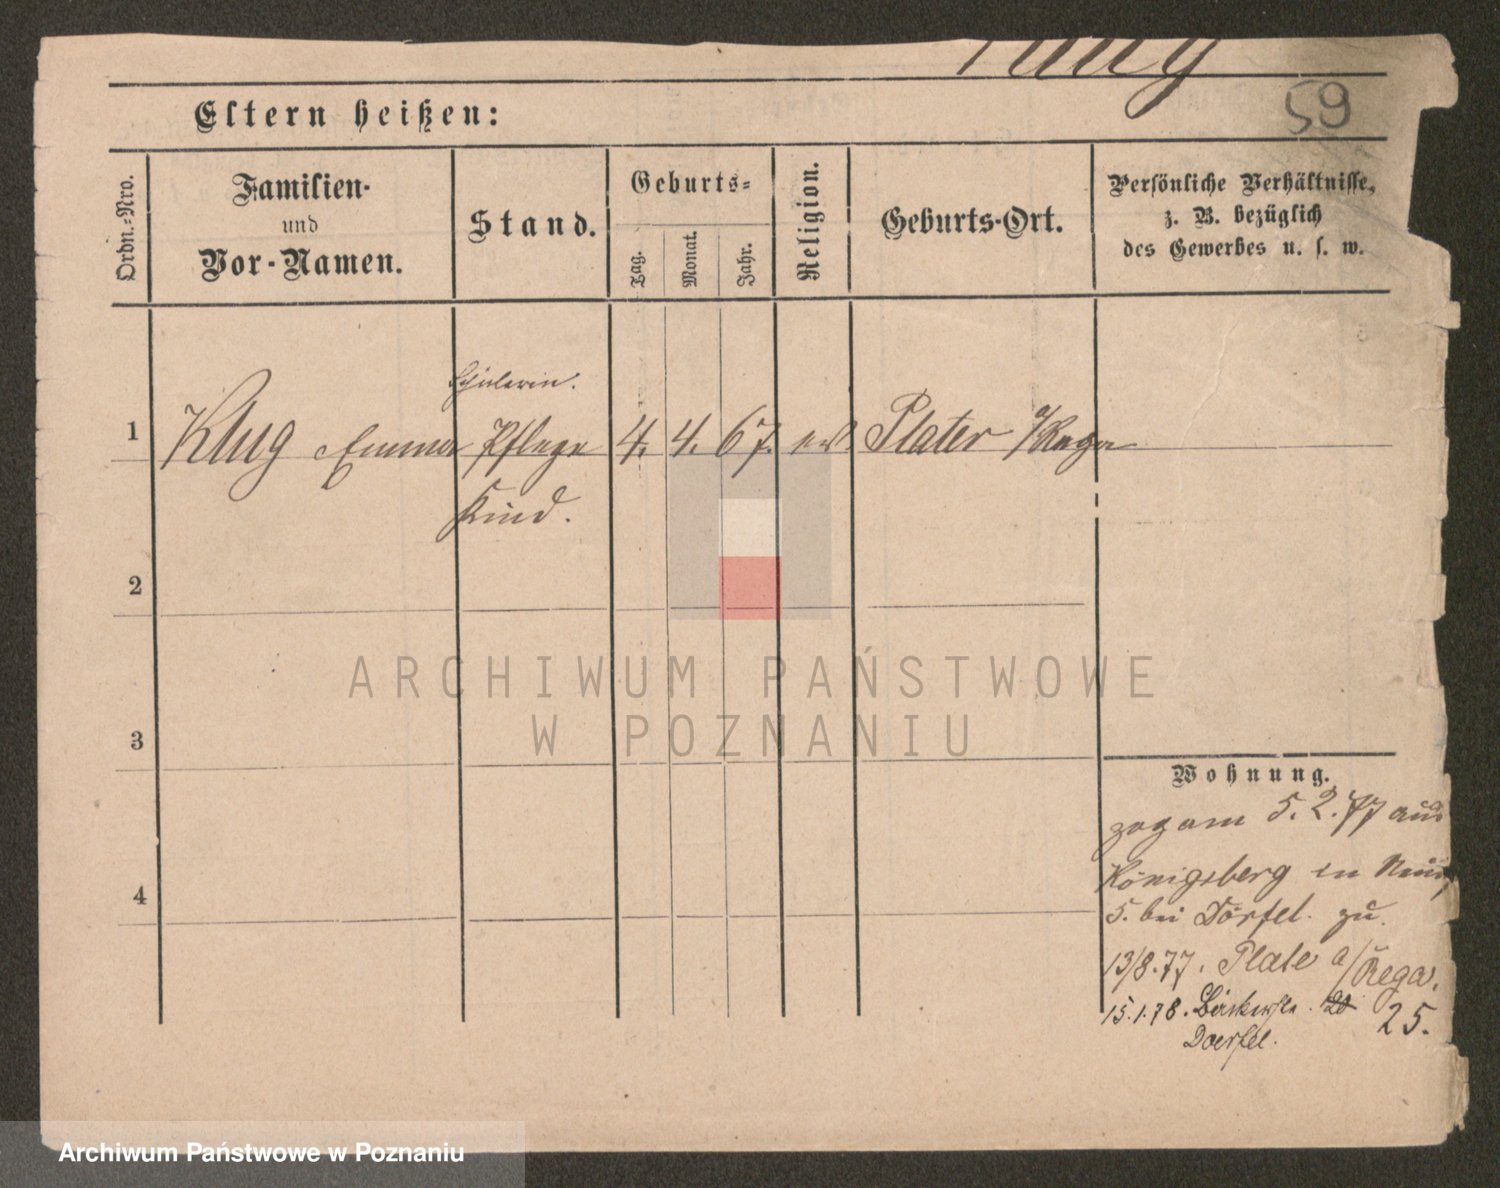 Klug
59
Eltern heißen:
Ordn.-Nro.
Familien-
und
Vor-Namen.
Stand.
Geburts-
Tag.
Monat.
Jahr.
Religion.
Geburts-Ort.
Persönliche Verhältnisse,
z. B. bezüglich
des Gewerbes u. s. w.
Schülerin.
1 Klug Emma Pflege 4. 4. 67. ev. Plater a/Rega
Kind.
2
3
4
ARCHIWUM PAŃSTWOWE
W POZNANIU
Wohnung.
zog am 5.2.77 aus
Königsberg in
5. bei Dörfel. zu.
13/8.77. Plate a/Rega.
15.1.78. 20 25.
Doerfel.
Archiwum Państwowe w Poznaniu